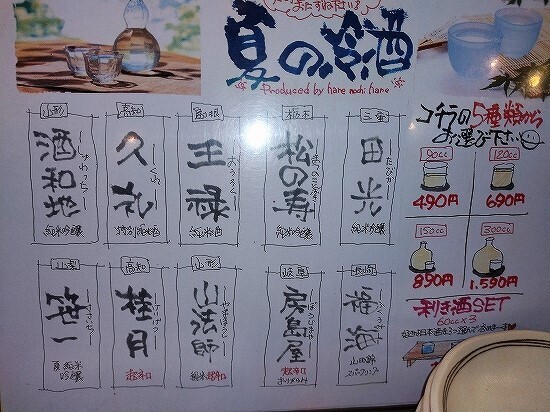 夏の冷酒
Produced by hare nochi hare
コチラの5種類から
お選び下さい
90cc
490円
120cc
690円
150cc
890円
300cc
1,590円
利き酒SET
60cc×3
三重
田光
たびか
純米吟醸
栃木
松の寿
まつのことぶき
純米吟醸
島根
王禄
おうろく
純米酒
高知
久礼
くれ
特別純米酒
山形
酒和地
純米吟醸
長崎
福海
ふくうみ
山田錦
スパークリング
岐阜
房島屋
ぼうじまや
超辛口
おりがらみ
山形
山法師
やまほうし
純米超辛口
高知
桂月
けいげつ
超辛口
山梨
笹一
ささいち
夏純米
吟醸